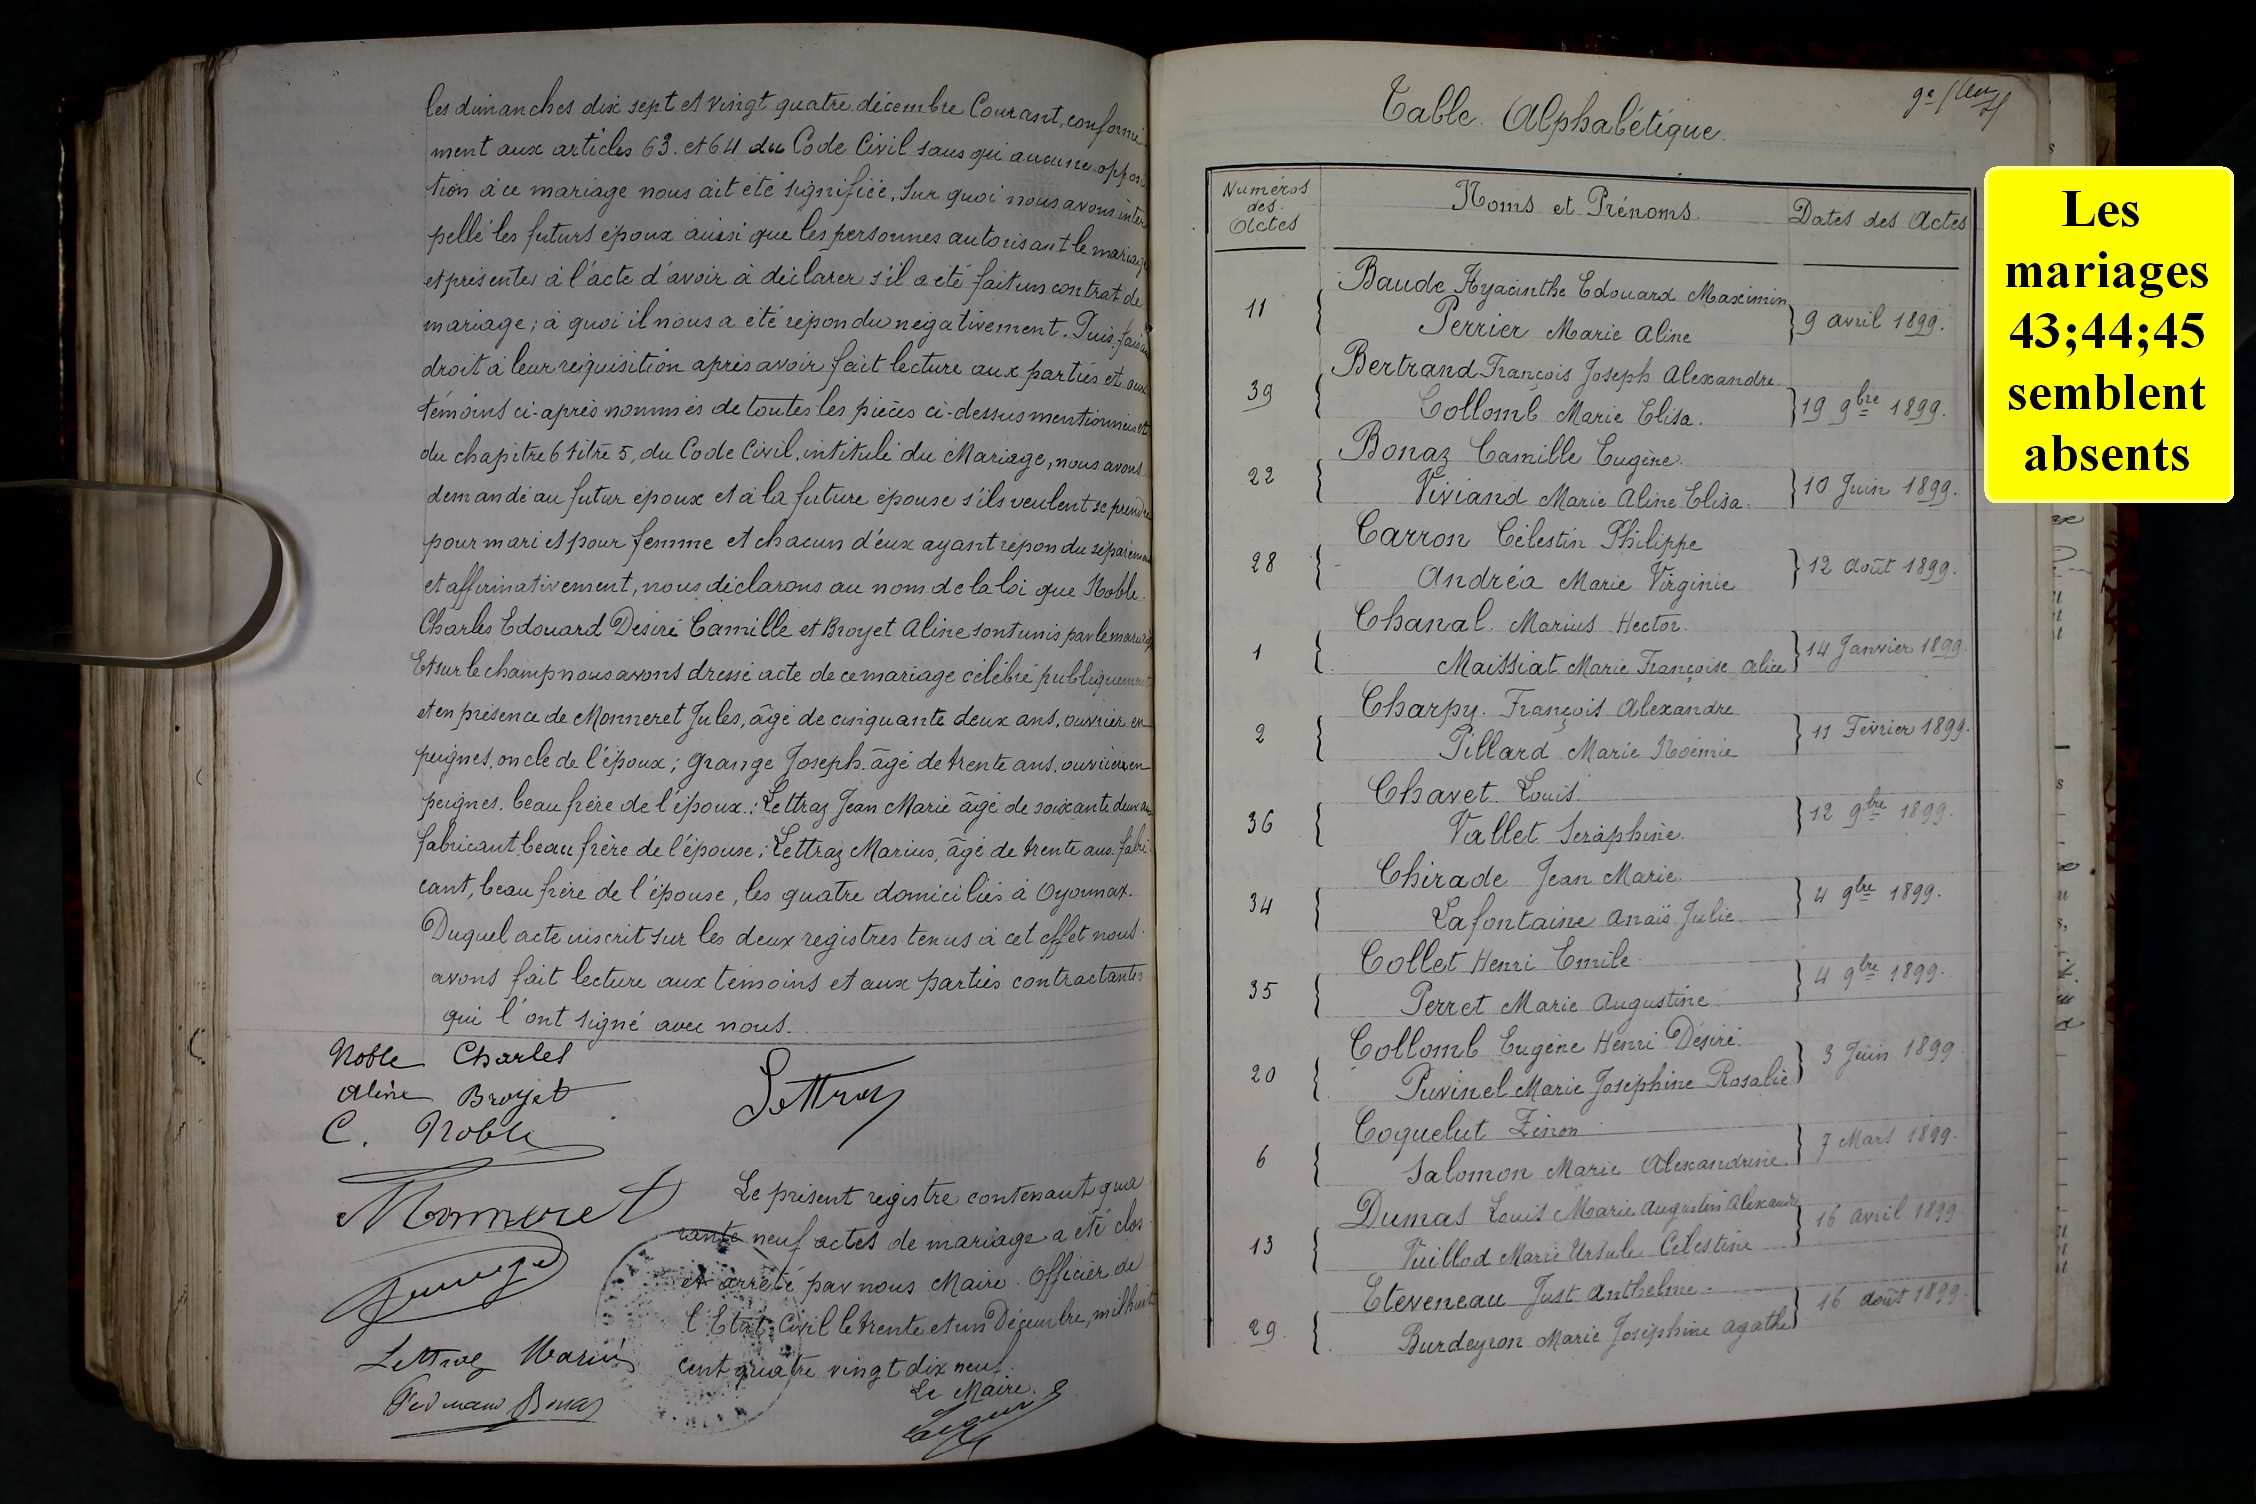 les dimanches dix sept et vingt quatre décembre Courant, conformé
ment aux articles 63. et 64 du Code Civil sans qu'aucune oppos
tion à ce mariage nous ait été signifiée. Sur quoi nous avons inter
pellé les futurs époux ainsi que les personnes autorisant le mariage
et présentes à l'acte d'avoir à déclarer s'il a été fait un contrat de
mariage; à quoi il nous a été répondu négativement. Puis faisant
droit à leur réquisition après avoir fait lecture aux parties et aux
témoins ci-après nommés de toutes les pièces ci-dessus mentionnées et
du chapitre 6 titre 5, du Code Civil, intitulé du Mariage, nous avons
demandé au futur époux et à la future épouse s'ils veulent se prendre
pour mari et pour femme et chacun d'eux ayant répondu séparément
et affirmativement, nous déclarons au nom de la loi que Noble
Charles Edouard Désiré Camille et Broyet Aline sont unis par le mariage
Et sur le champ nous avons dressé acte de ce mariage célébré publiquement
et en présence de Monneret Jules, âgé de cinquante deux ans, ouvrier en
peignes, oncle de l'époux; Grange Joseph, âgé de trente ans, ouvrier en
peignes, beau frère de l'époux.; Lettraz Jean Marie âgé de soixante deux ans
fabricant, beau frère de l'épouse; Lettraz Marius, âgé de trente ans, fabri
cant, beau frère de l'épouse, les quatre domiciliés à Oyonnax.
Duquel acte inscrit sur les deux registres tenus à cet effet nous
avons fait lecture aux témoins et aux parties contractantes
qui l'ont signé avec nous.
Noble Charles
Aline Broyet
C. Noble
Lettraz
Monneret
Lettraz Marius
Le présent registre contenant qua
rante neuf actes de mariage a été clos
et arrêté par nous Maire. Officier de
l'Etat Civil le trente et un Décembre, mil huit
cent quatre vingt dix neuf.
Le Maire.
Table Alphabétique
Numéros des Actes
Noms et Prénoms
Dates des Actes
Baude Hyacinthe Edouard Maximin
11 Perrier Marie Aline 9 avril 1899.
Bertrand François Joseph Alexandre
39 Collomb Marie Elisa. 19 9bre 1899.
Bonaz Camille Eugène.
22 Viviand Marie Aline Elisa. 10 Juin 1899.
Carron Célestin Philippe
28 Andréa Marie Virginie 12 août 1899.
Chanal Marius Hector.
1 Maissiat Marie Françoise Alice 14 Janvier 1899.
Charpy François Alexandre
2 Pillard Marie Noémie 11 Février 1899.
Chavet Louis.
36 Vallet Séraphine. 12 9bre 1899.
Chirade Jean Marie.
34 Lafontaine Anaïs Julie 4 9bre 1899.
Collet Henri Emile.
35 Perret Marie Augustine 4 9bre 1899.
Collomb Eugène Henri Désiré.
20 Puvinel Marie Joséphine Rosalie 3 Juin 1899
Coquelut Zénon
6 Salomon Marie Alexandrine. 7 Mars 1899.
Dumas Louis Marie Augustin Alexandre
13 Vuillod Marie Ursule Célestine 16 avril 1899
Eteveneau Just Anthelme.
29 Burdeyron Marie Joséphine Agathe 16 août 1899.
Les
mariages
43;44;45
semblent
absents